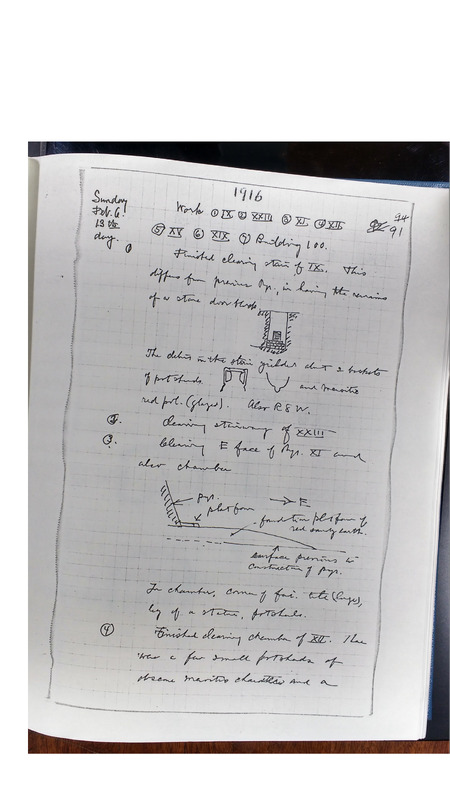 1916
Sunday
Feb. 6.
13th
day.
Work ① IX ② XXIII ③ XI ④ XII 94
⑤ XV ⑥ XIX ⑦ Building 100. 91
① Finished clearing stair of IX. This
differs from previous Pyr., in having the remains
of a stone door block.
The debris in the stair yielded about 2 baskets
of potsherds and
red pol. (glazed). Also R & W.
②. Clearing stairway of XXIII
③. Clearing E face of Pyr. XI and
also chamber
pyr.
platform
E
foundation platform of
red sandy earth.
surface previous to
construction of pyr.
In chamber, corner of fai. tile (large),
leg of a statue, potsherds.
④ Finished clearing chamber of XII. There
was a few small potsherds of
obscure character and a